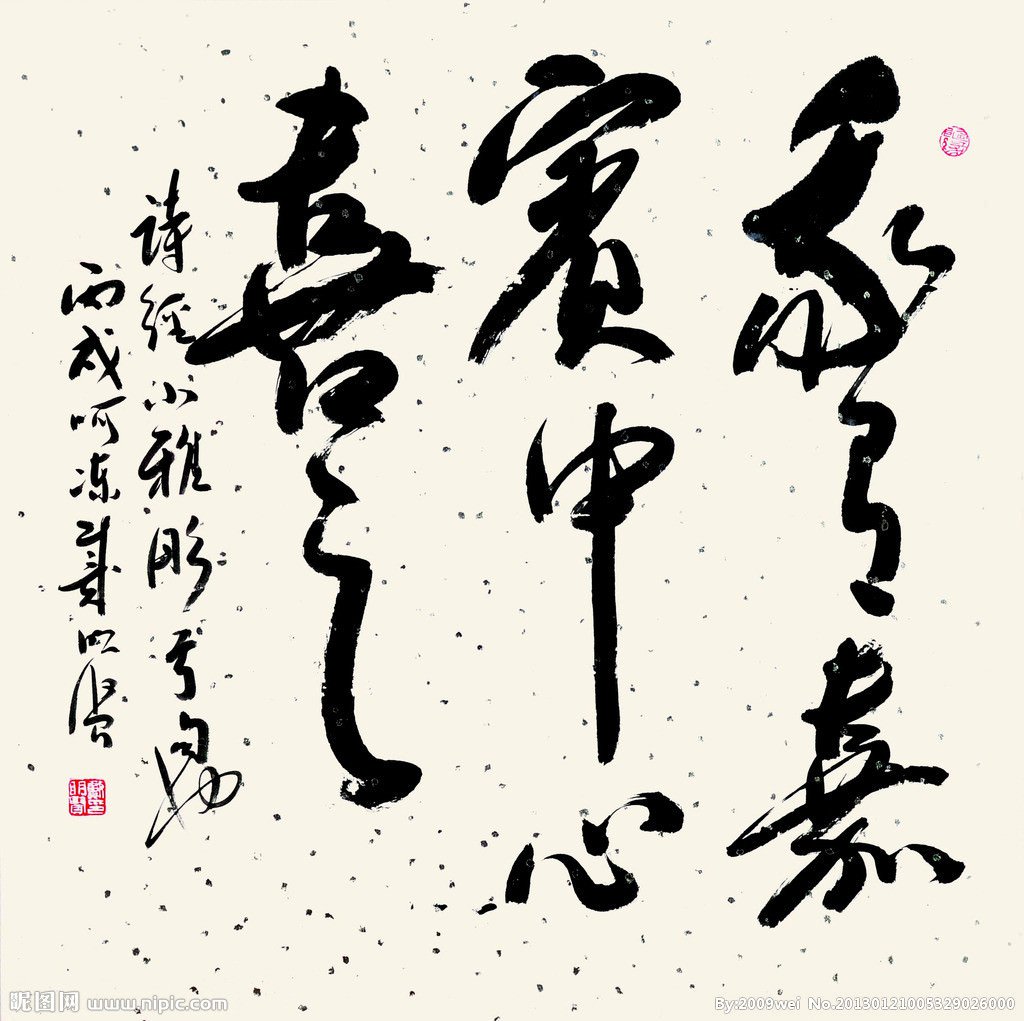 我有嘉
賓中心
喜之
詩經小雅彤弓句
丙戌呵凍戴明賢
昵图网 www.nipic.com
By:2009wei No.20130121005329026000